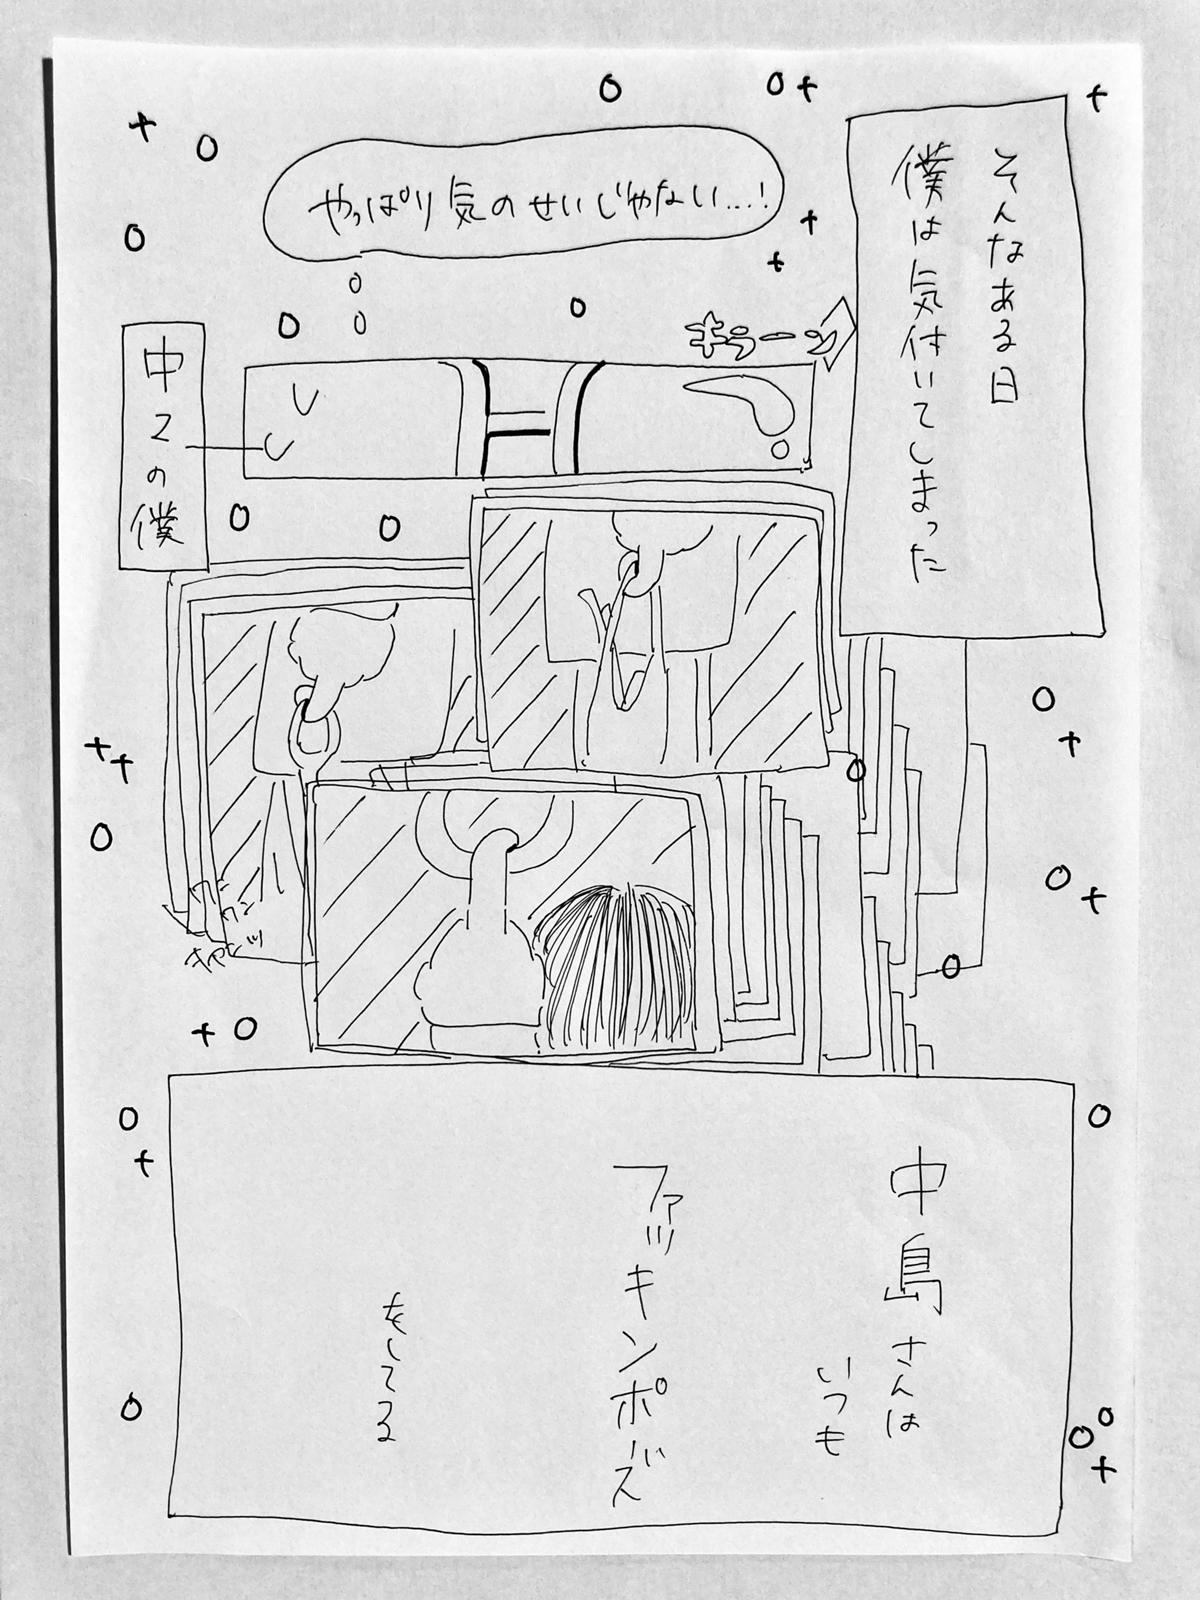 そんなある日
僕は気付いてしまった
やっぱり気のせいじゃない…!
キラーン
中2の僕
中島さんは
いつも
ファッキンポーズ
をしてる